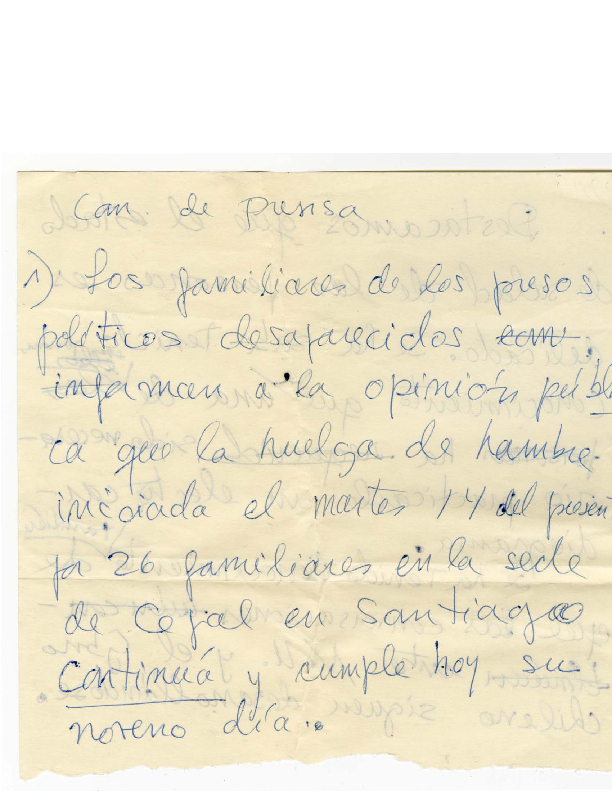 Con de Prensa
1) Los familiares de los presos
políticos desaparecidos
informan a la opinión públi
ca que la huelga de hambre
iniciada el martes 14 del presen
por 26 familiares en la sede
de Cepal en Santiago
continuá y cumple hoy su
noveno día.